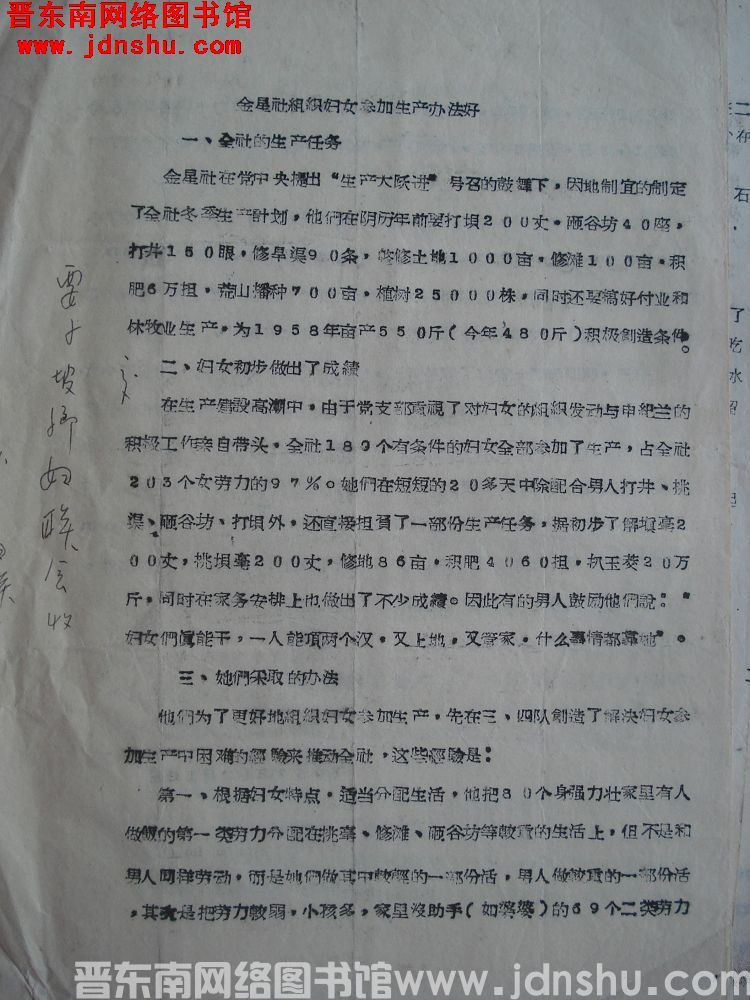 晋东南网络图书馆
www.jdnshu.com
金星社組織妇女参加生产办法好
一、全社的生产任务
金星社在党中央提出“生产大跃进”号召的鼓舞下，因地制宜的制定
了全社冬季生产計划，他们在阴历年前要打埧200丈，砸谷坊40座，
打井150眼，修旱渠90条，整修土地1000亩，修滩100亩，积
肥6万担，荒山播种700亩，植树25000株，同时还要搞好付业和
林牧业生产，为1958年亩产550斤（今年480斤）积极創造条件。
二、妇女初步做出了成績
在生产建設高潮中，由于党支部重視了对妇女的組織发动与申紀兰的
积极工作亲自带头，全社189个有条件的妇女全部参加了生产，占全社
203个女劳力的97%。她们在短短的20多天中除配合男人打井、挑
渠、砸谷坊、打埧外，还直接担負了一部份生产任务，据初步了解填毫2
00丈，挑埧毫200丈，修地86亩，积肥4060担，扒玉茭20万
斤，同时在家务安排上也做出了不少成績。因此有的男人鼓励他們說：“
妇女們眞能干，一人能頂两个汉，又上地，又管家，什么事情都靠她”。
三、她們采取的办法
他們为了更好地組織妇女参加生产，先在三、四队創造了解决妇女参
加生产中困难的經驗来推动全社，这些經驗是：
第一、根据妇女特点，适当分配生活，他把80个身强力壮家里有人
做飯的第一类劳力分配在挑毫、修滩、砸谷坊等較重的生活上，但不是和
男人同样劳动，而是她們做其中較輕的一部份活，男人做較重的一部份活
，其次是把劳力較弱，小孩多，家里沒助手（如婆婆）的69个二类劳力
坡乡妇联会收
晋东南网络图书馆www.jdnshu.com